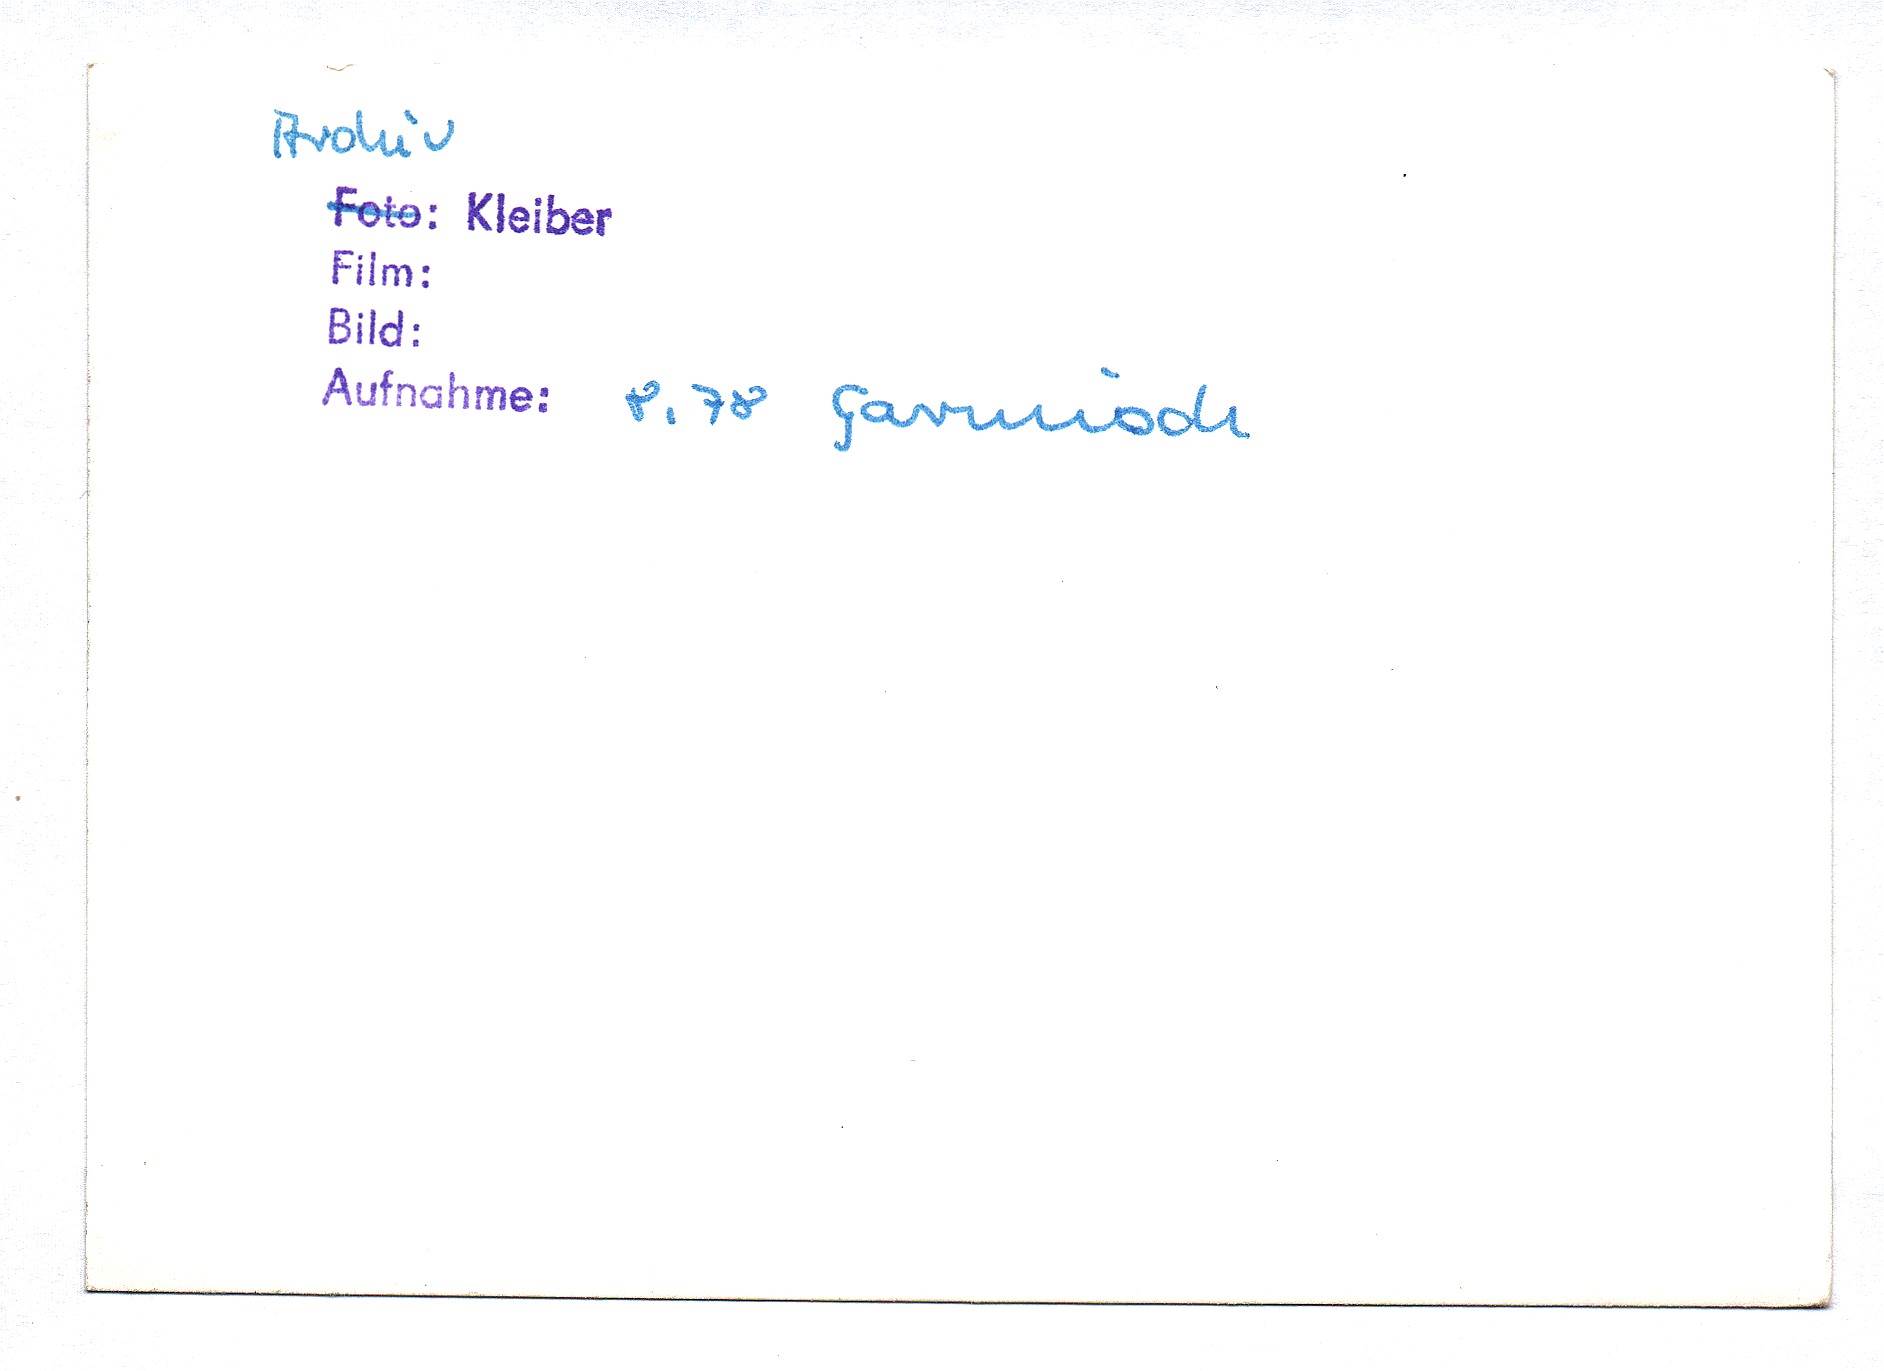 Archiv
Foto: Kleiber
Film:
Bild:
Aufnahme: 8.78 Garmisch